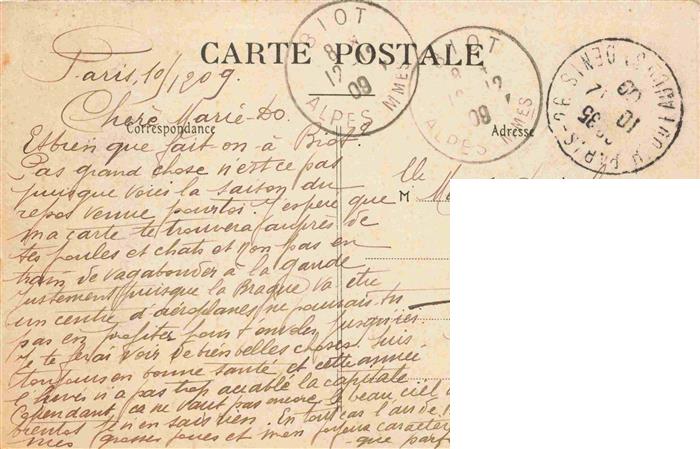 CARTE POSTALE
BIOT
8
12
09
ALPES MMES
BIOT
8
12
09
ALPES MMES
PARIS
10
09
35
Correspondance
Adresse
M
lle
Paris, 10/12 09.
Chère Marie-
Et bien que fait-on à Biot?
Pas grand chose n'est ce pas
puisque voici la saison du
repos venue pour toi. J'espère que
ma carte te trouvera auprès de
tes poules et chats et non pas en
train de vagabonder à la Gaude
justement puisque la Brague va être
un centre d'aéroplanes ne pourrais tu
pas en profiter pour jusqu'ici.
Je te ferai voir de bien belles choses. Suis
toujours en bonne santé et cette année
l'hiver n'a pas trop accablé la capitale
Cependant ça ne vaut pas encore le beau ciel
bientôt je n'en sais rien. En tout cas l'air de
mes grosses joues et mon joyeux caractère
que